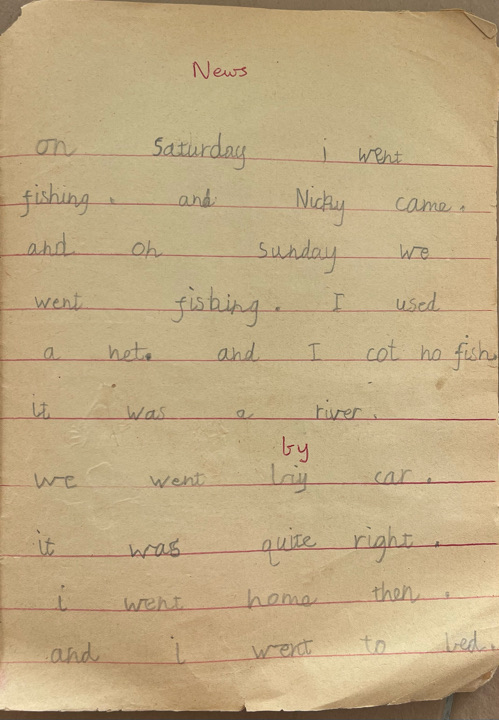 News
on Saturday i went
fishing. and Nicky came.
and on sunday we
went fishing. I used
a net. and I cot no fish.
it was a river.
by
we went biy car.
it was quite right.
i went home then.
and i went to bed.